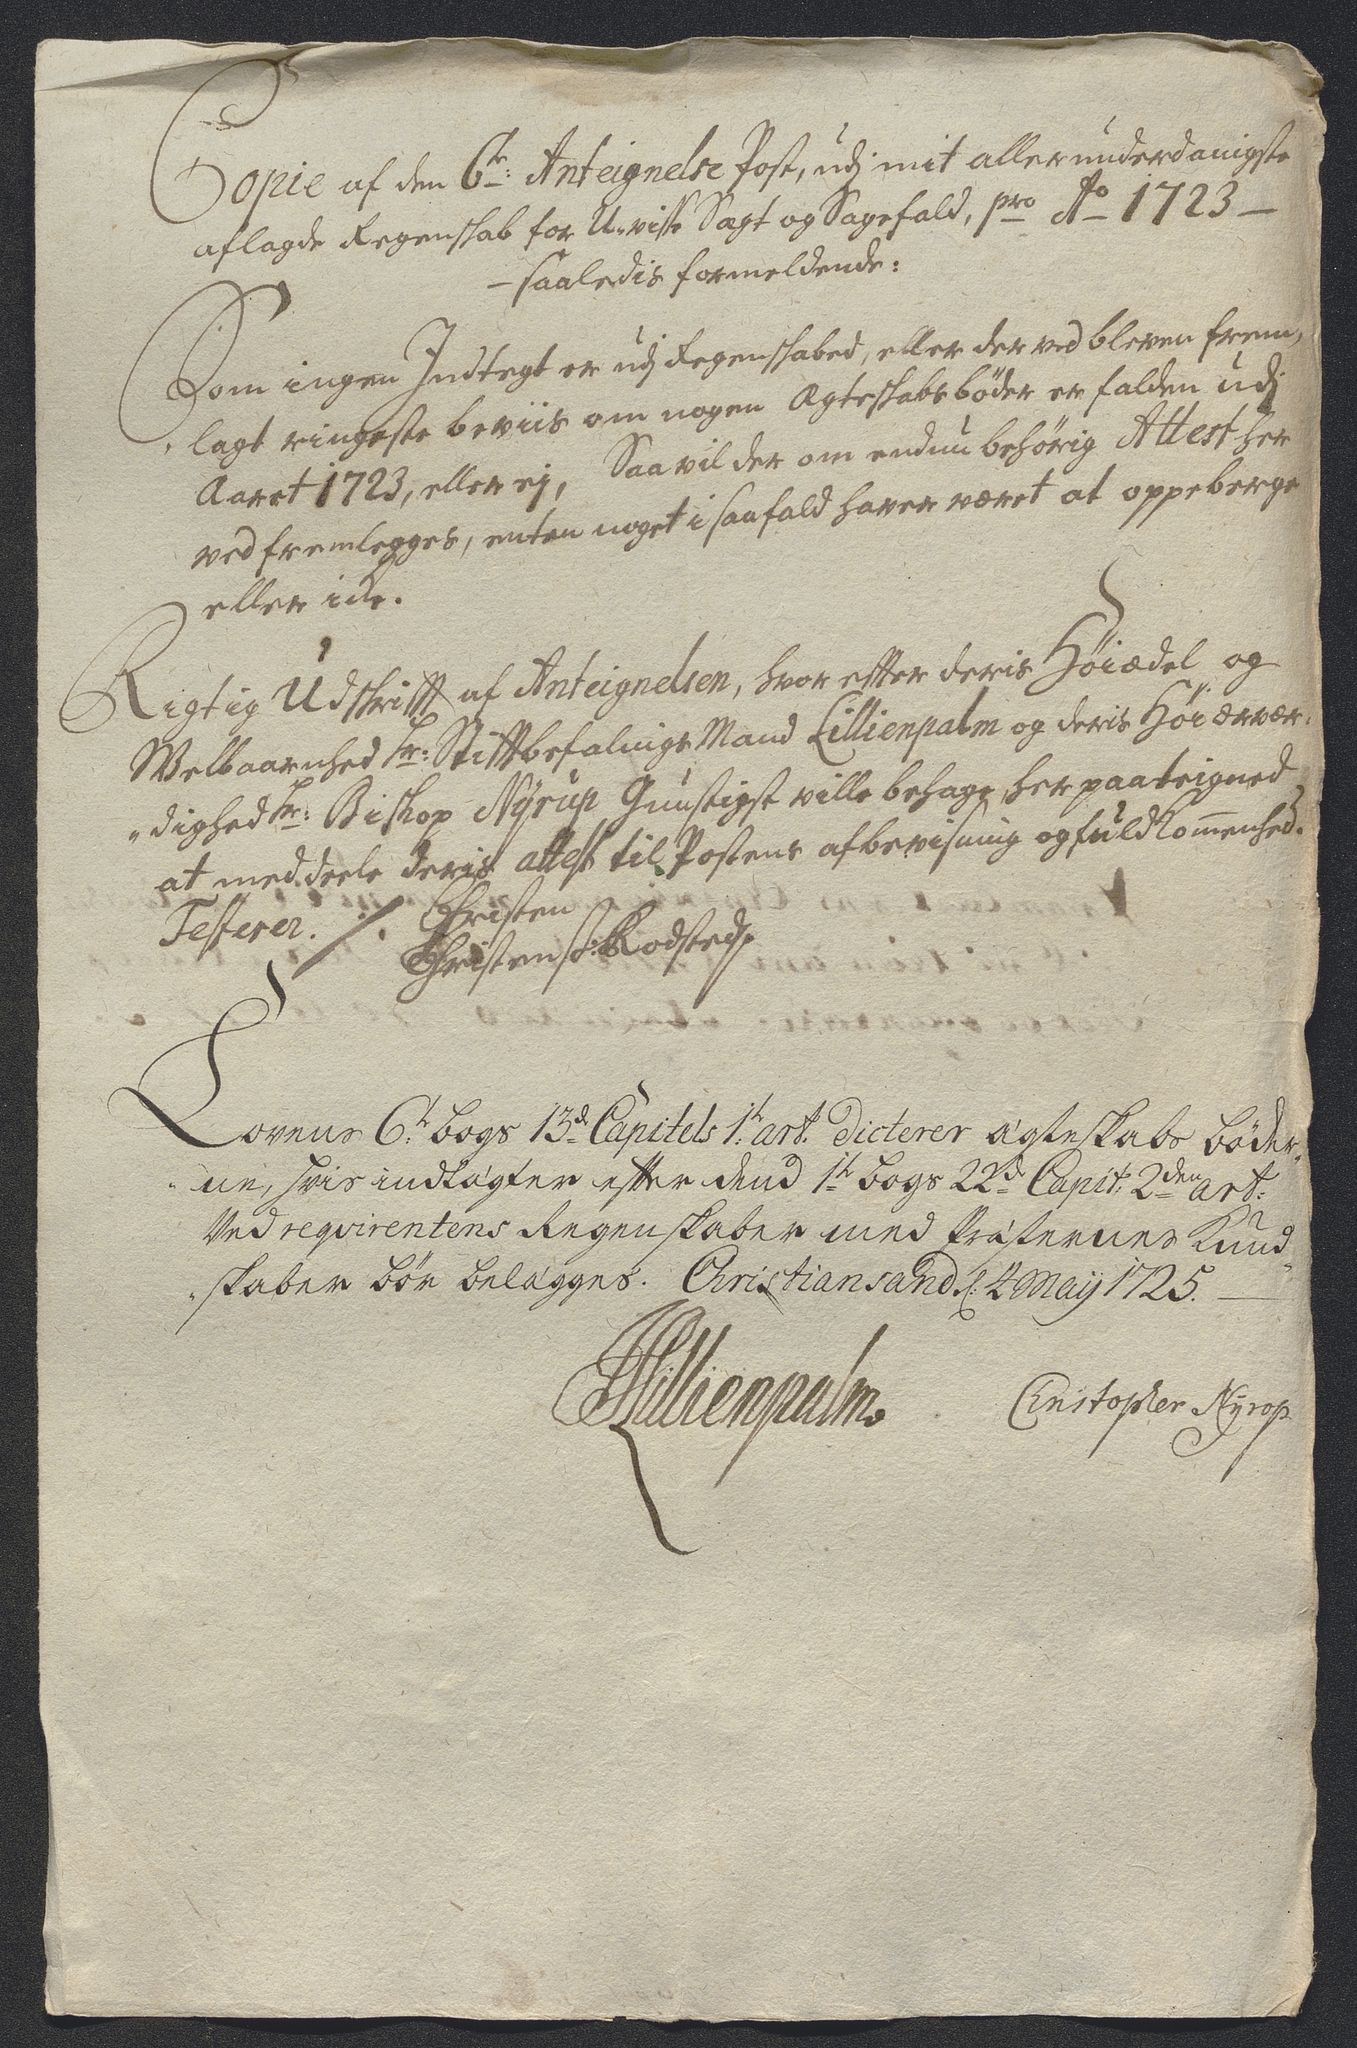 Copie af den 6te: Anteignelse Post, udj mit allerunderdanigste
aflagde Regenskab for U-visse Sagt og Sagefald, pro Ao 1723 —
— saaledis formeldende:
Som ingen Indtegt er udj Regenskabed, eller der ved bleven frem,
lagt ringeste beviis om nogen Ægteskabs bøder er falden udj
Aaret 1723, eller ej, Saa vil der om endnu behørig Attest her
ved fremlegges, enten noget i saafald haver været at oppeberge
eller icke.
Rigtig Udskrifft af Anteignelsen, hvor effter deris Høiædel og
Welbaarnhed Hr: Stifftbefalings Mand Lillienpalm og deris Høiærvær:
„dighed Hr: Biskop Nyrup Gunstigst ville behage her paateigned
at meddeele deris attest til Postens afbevisning og fuldkommenhed.
Testerer. ⁒ Christen
Christens: Rodsted
Lovens 6te bogs 13de Capitels 1te art. Dicterer ægteskabs bøder„
„ne, hvis indtægter effter dend 1te bogs 22de Capit: 2den art:
Ved reqvirentens Regenskaber med Præsternes Kund„
„skaber bør belægges. Christiansand d: 4 Maij 1725. —
Lillienpalm.
Christopher Nyrop